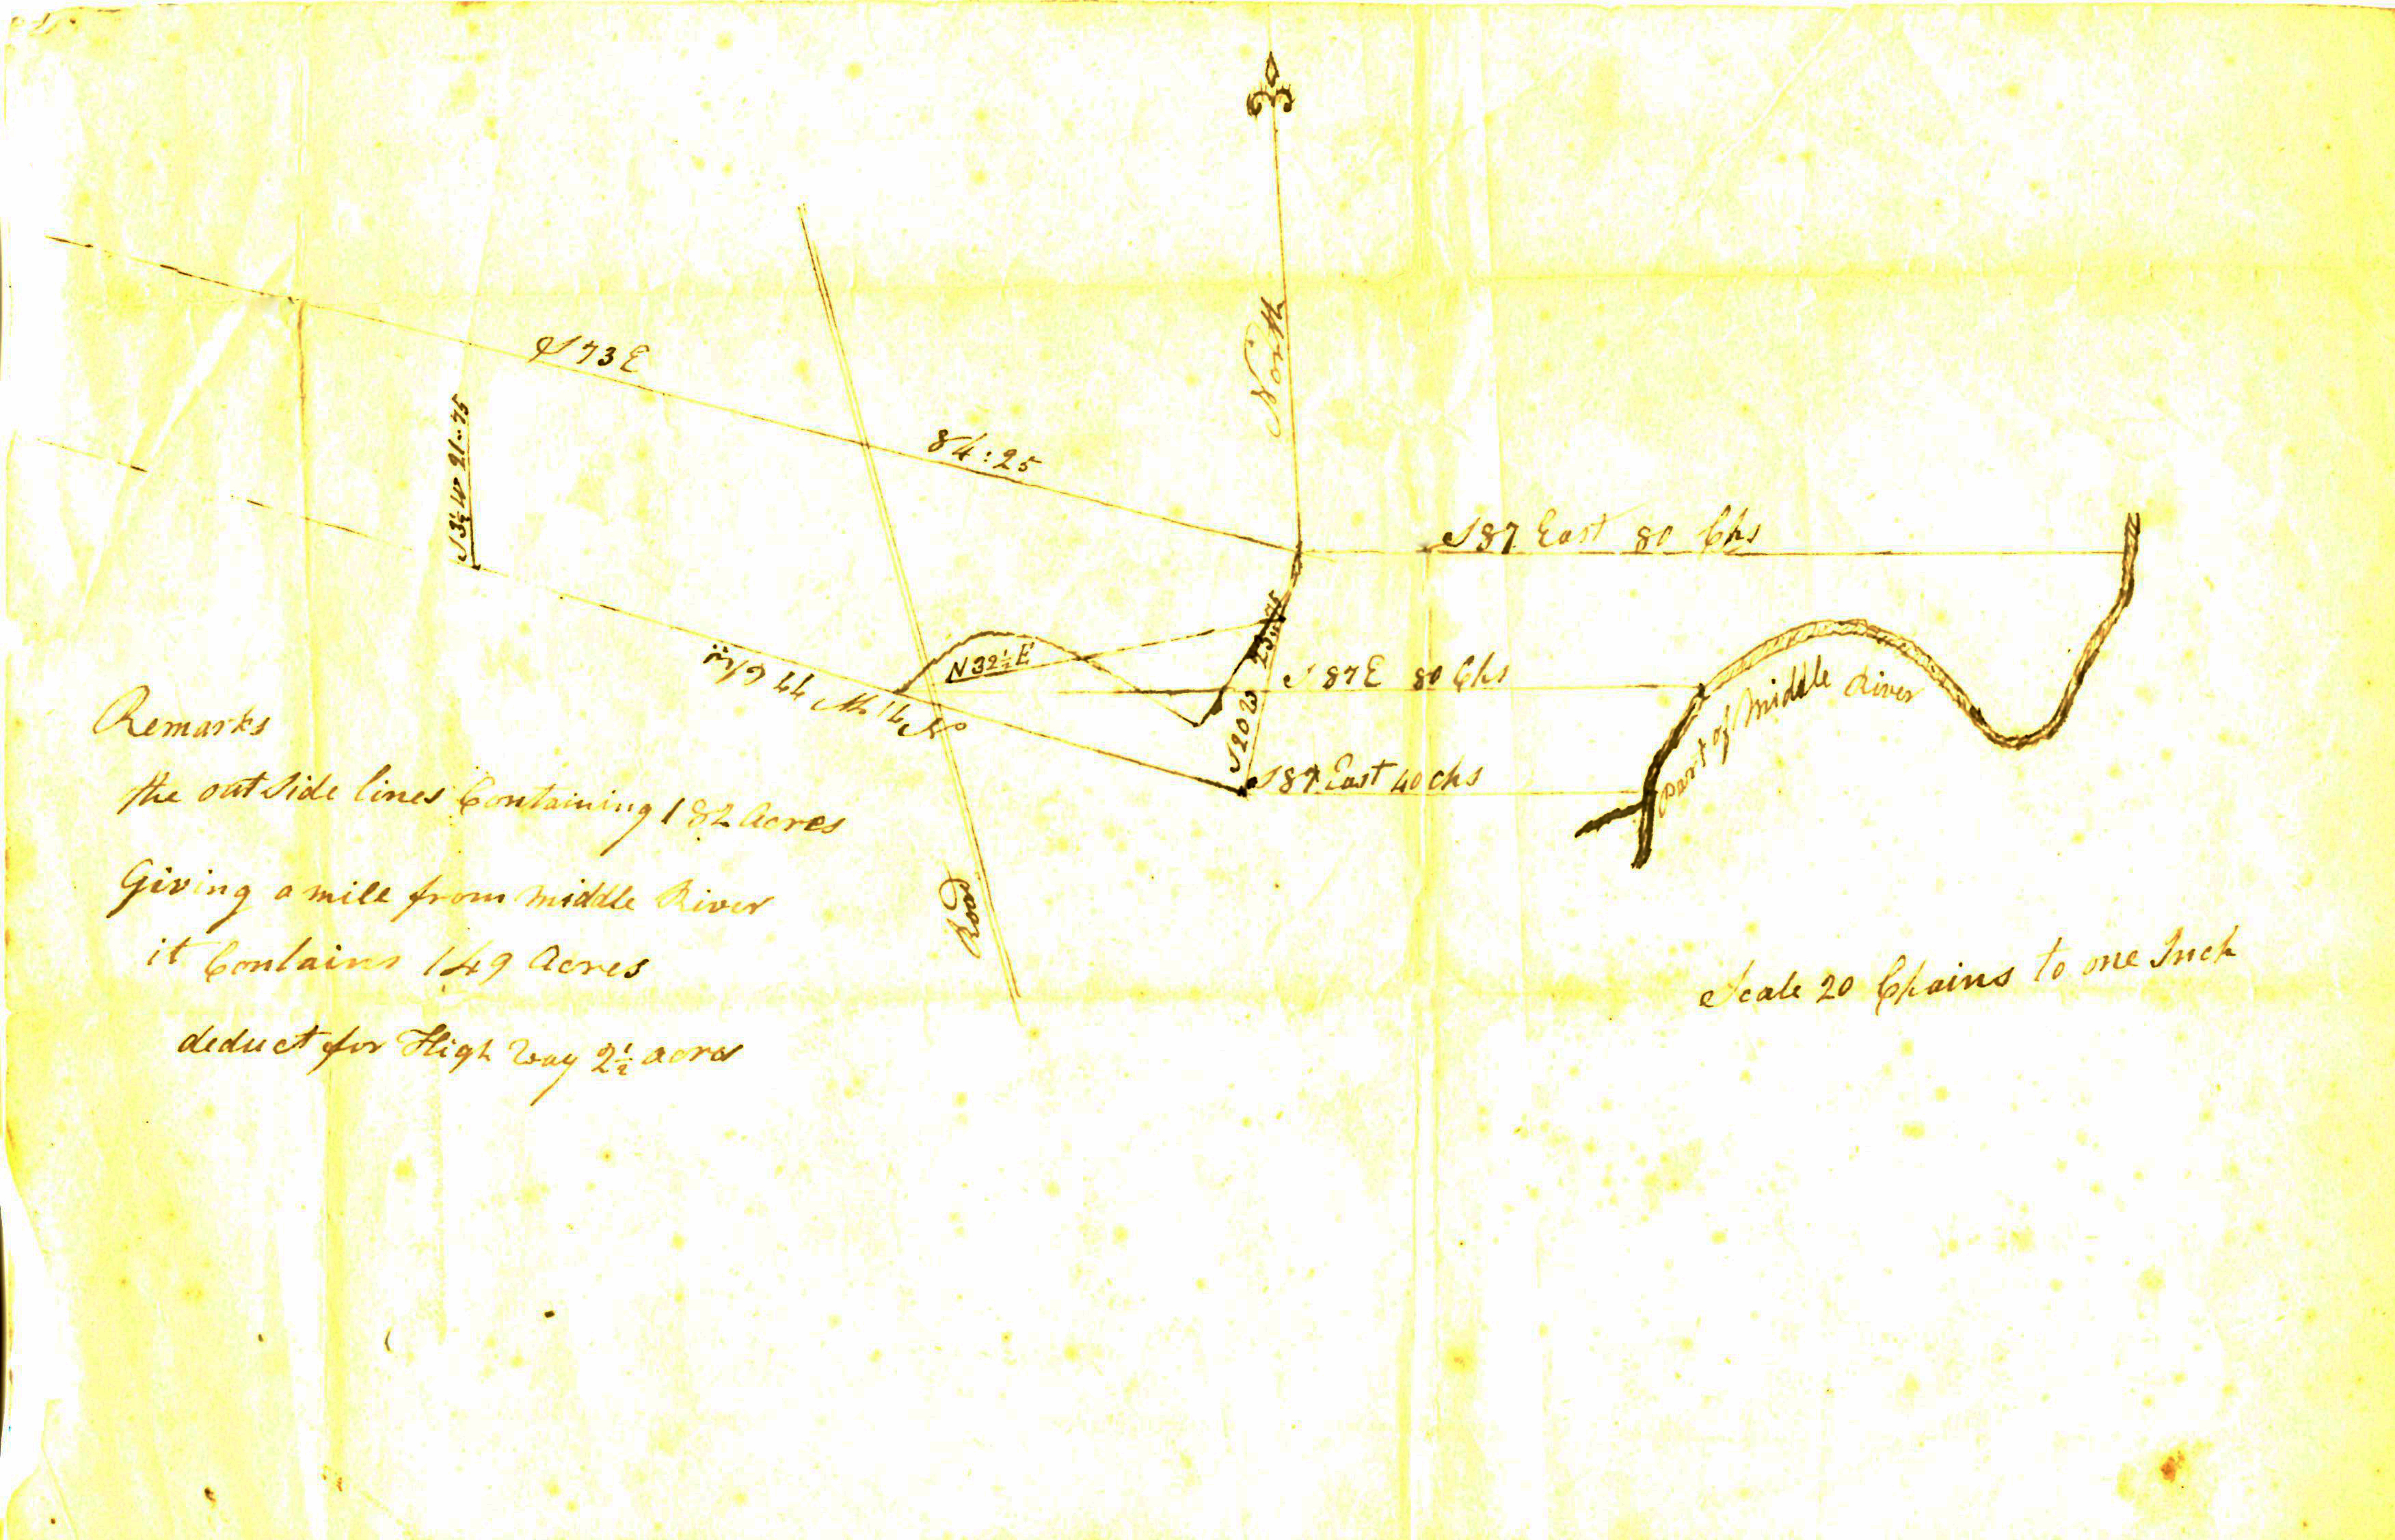 North
S 73 E
84:25
S 3½ W 21..75
N 32½ E
S 20 W 23..75
S 87 East 80 Chs
S 87 E 80 Chs
S 87 East 40 chs
Part of Middle River
Road
Remarks
the out Side lines Containing 182 acres
Giving a mile from Middle River
it Contains 149 Acres
deduct for High Way 2½ acres
Scale 20 Chains to one Inch